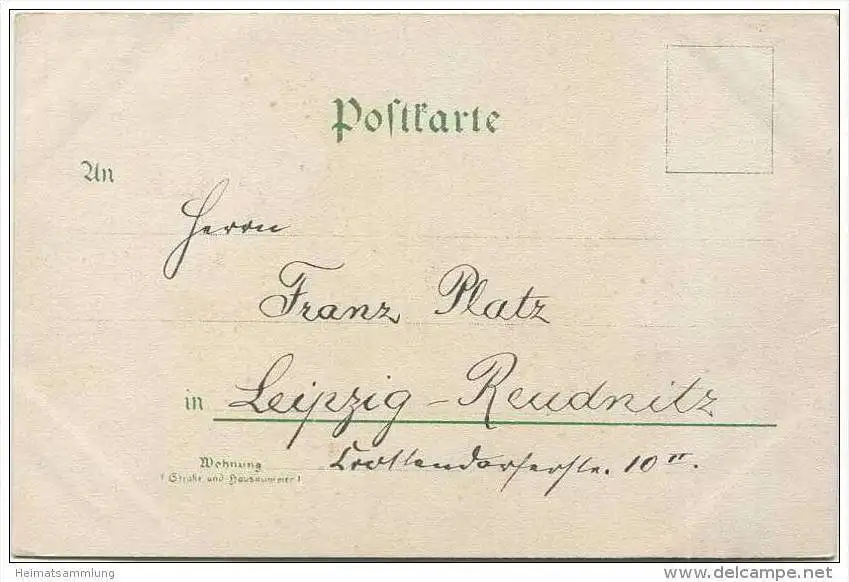 Postkarte
An
Herrn
Franz Platz
in Leipzig-Reudnitz
Wohnung
(Straße und Hausnummer)
Crottendorferstr. 10 II.
Heimatsammlung
delcampe.net